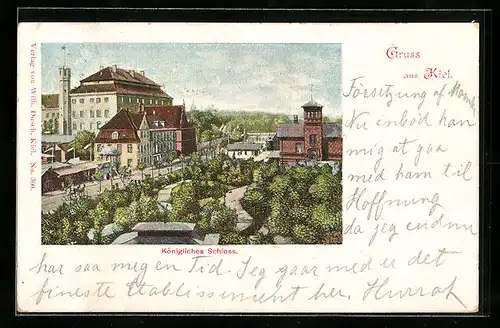 Verlag von Wilh. Dosch, Kiel. No. 360.
Gruss
aus Kiel.
Försætning af
Nu inbød han
mig at gaa
med ham til
Hoffnung
da jeg endnu
Königliches Schloss.
har saa megen Tid. Jeg gaar med er det
fineste Etablissement her, Hurrah